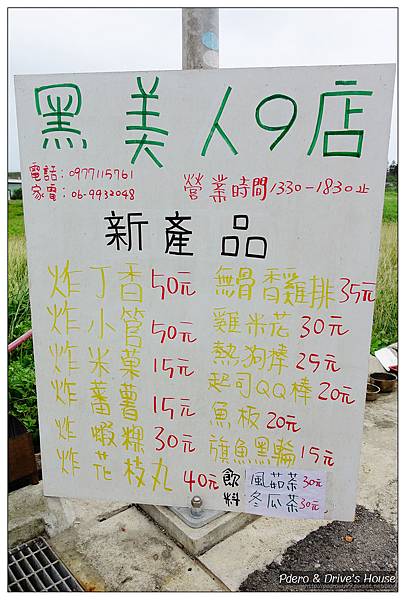 黑美人9店
電話：0977115761
家電：06-9932048
營業時間1330-1830止
新產品
炸丁香50元
炸小管50元
炸米菓15元
炸蕃薯15元
炸蝦粿30元
炸花枝丸40元
無骨香雞排35元
雞米花30元
熱狗棒25元
起司QQ棒20元
魚板20元
旗魚黑輪15元
飲料
風茹茶30元
冬瓜茶30元
Pdero & Drive's House